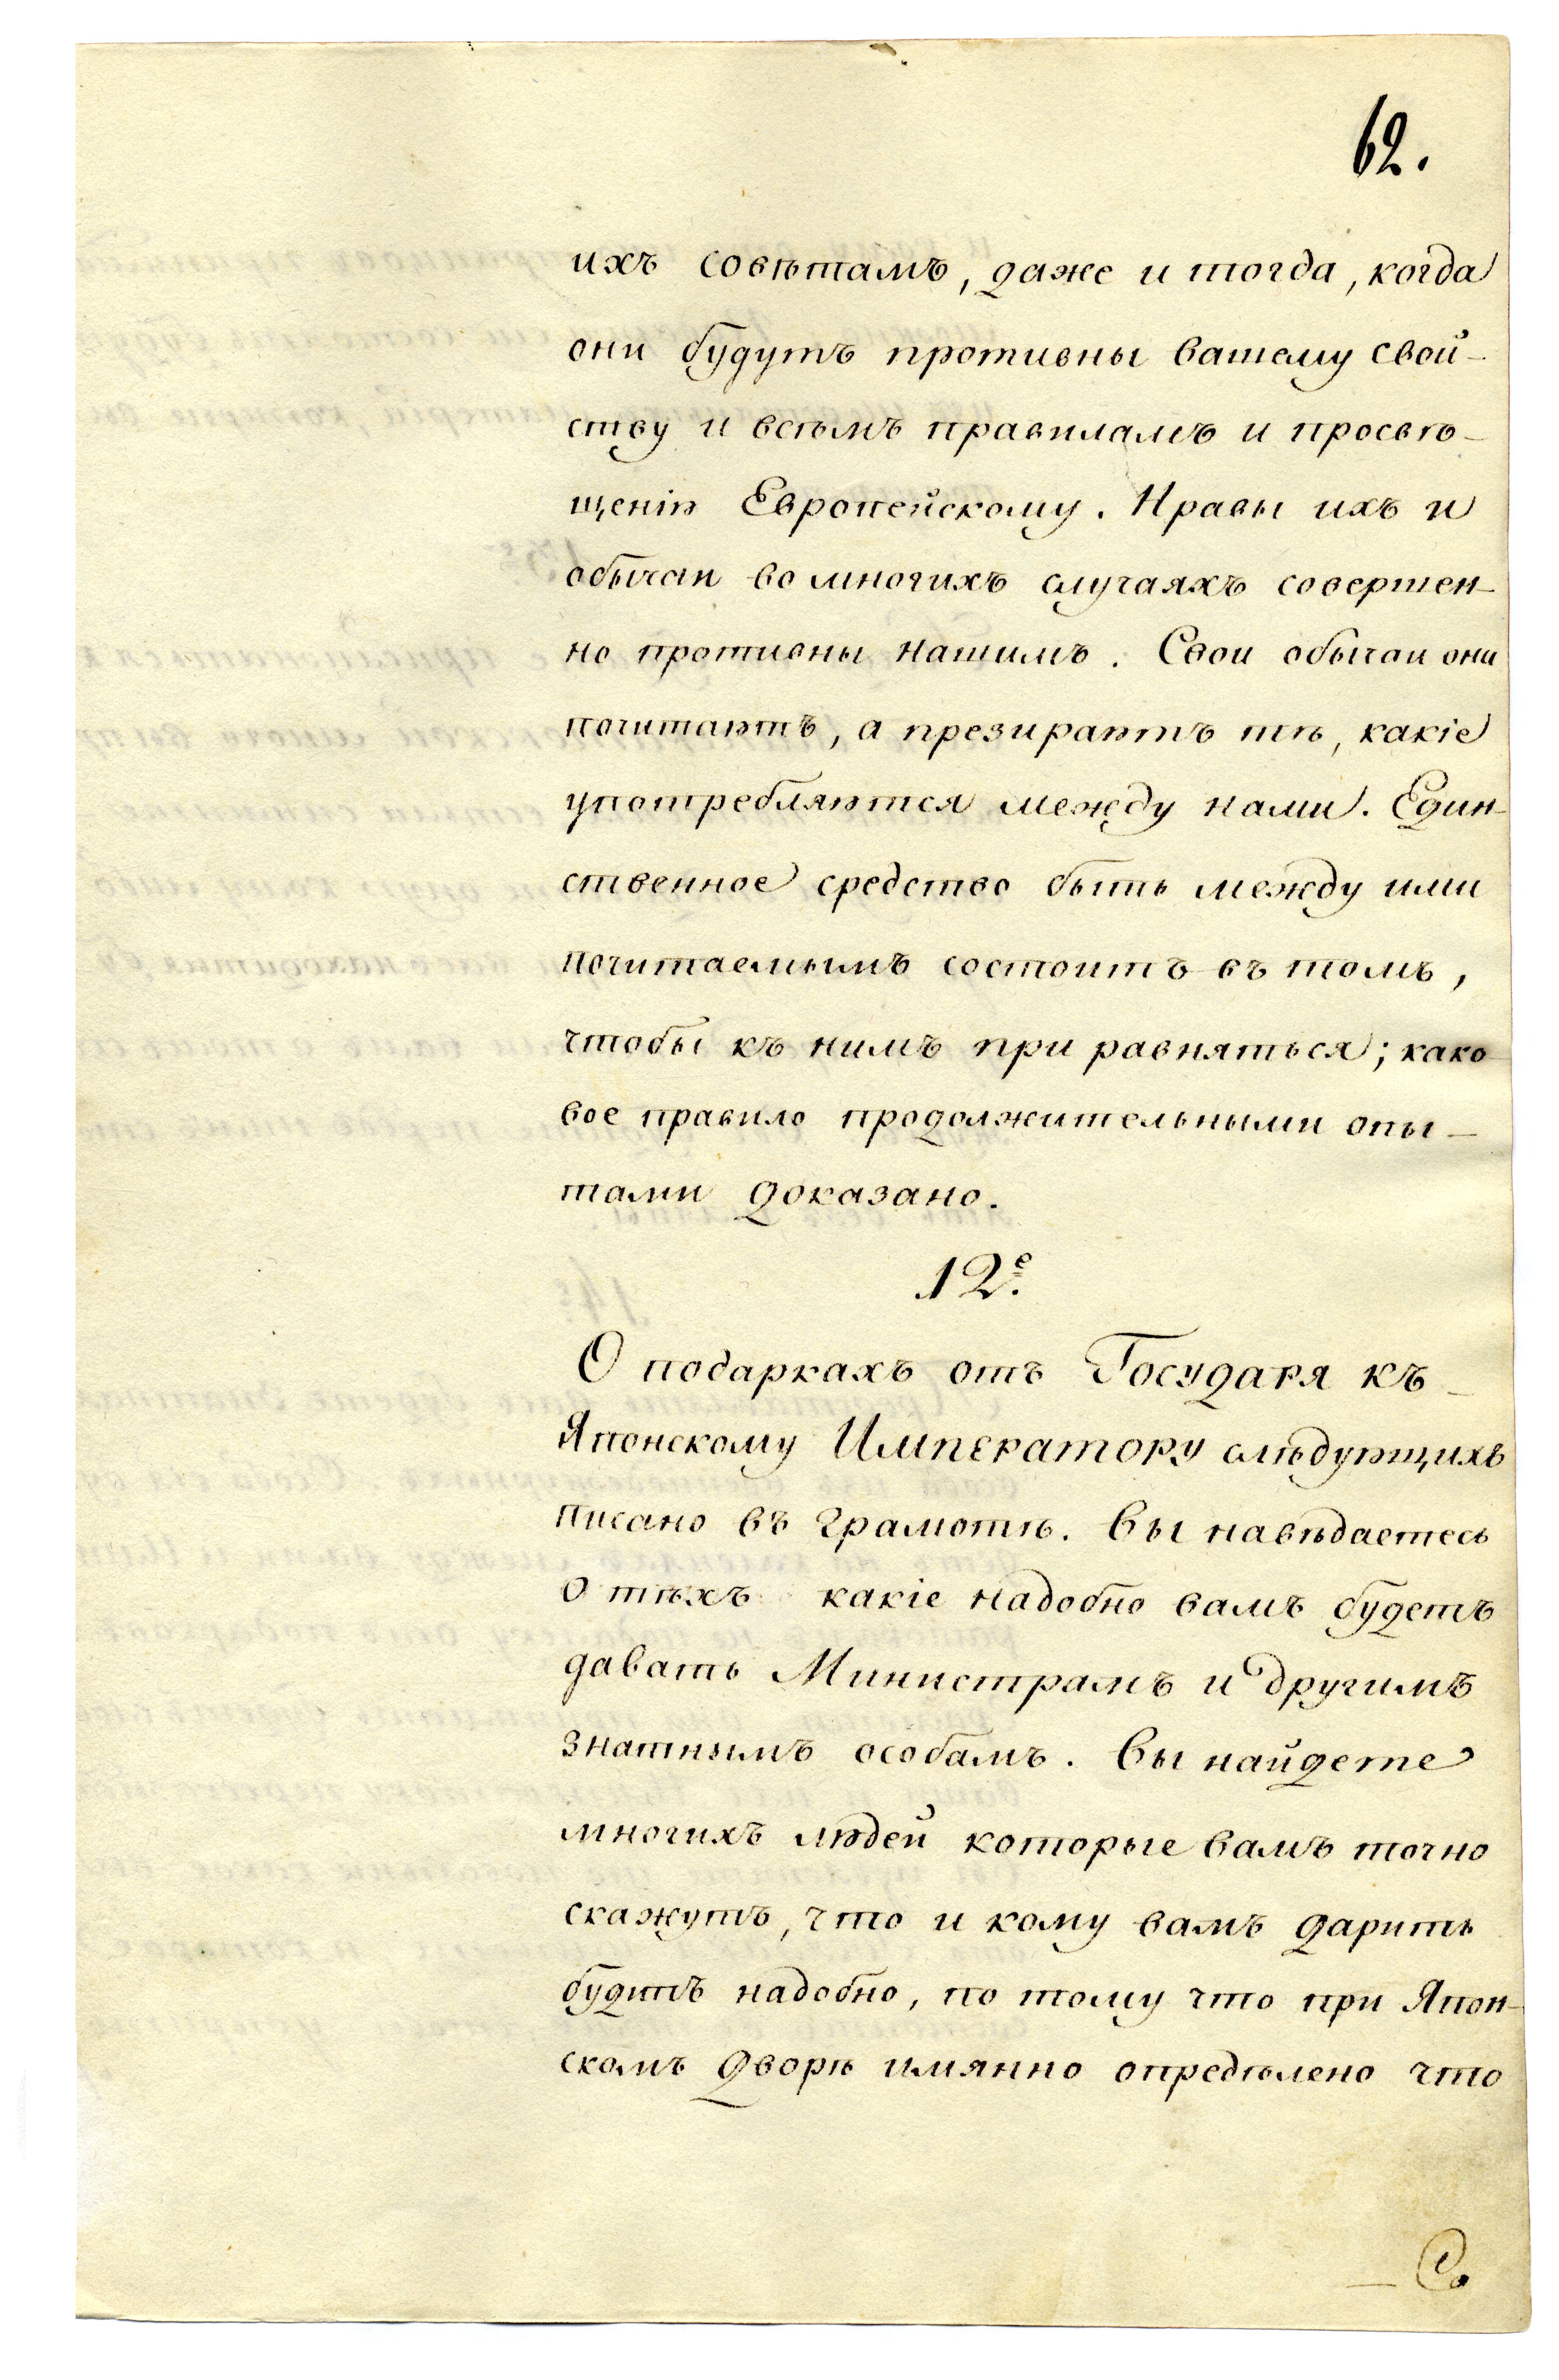 62.
ихъ совѣтамъ, даже и тогда, когда
они будутъ противны вашему свой-
ству и всѣмъ правиламъ и просвѣ-
щенію Европейскому. Нравы ихъ и
обычаи во многихъ случаяхъ совершен-
но противны нашимъ. Свои обычаи они
почитаютъ, а презираютъ тѣ, какіе
употребляются между нами. Един-
ственное средство быть между ими
почитаемымъ состоитъ въ томъ,
чтобы къ нимъ при равняться; како-
вое правило продолжительными опы-
тами доказано.
12е.
О подаркахъ отъ Государя къ
Японскому Императору слѣдующихъ
писано въ грамотѣ. Вы навѣдаетесь
о тѣхъ какіе надобно вамъ будетъ
давать Министрамъ и другимъ
знатнымъ особамъ. Вы найдете
многихъ людей которые вамъ точно
скажутъ, что и кому вамъ дарить
будитъ надобно, по тому что при Япон-
скомъ дворѣ имянно опредѣлено что